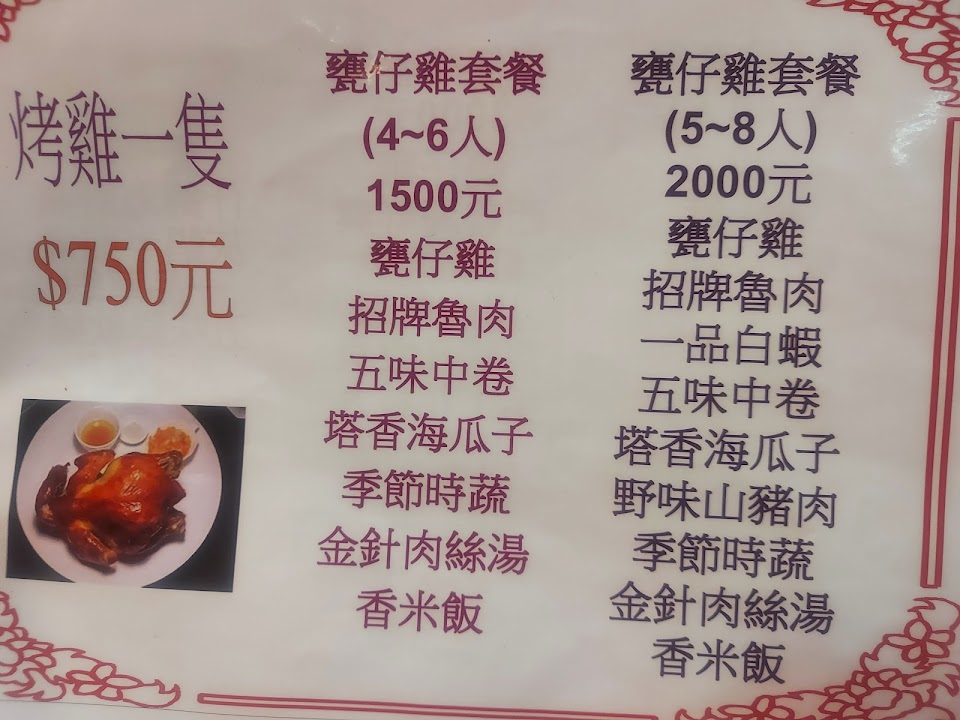 烤雞一隻
$750元
甕仔雞套餐
(4~6人)
1500元
甕仔雞
招牌魯肉
五味中卷
塔香海瓜子
季節時蔬
金針肉絲湯
香米飯
甕仔雞套餐
(5~8人)
2000元
甕仔雞
招牌魯肉
一品白蝦
五味中卷
塔香海瓜子
野味山豬肉
季節時蔬
金針肉絲湯
香米飯